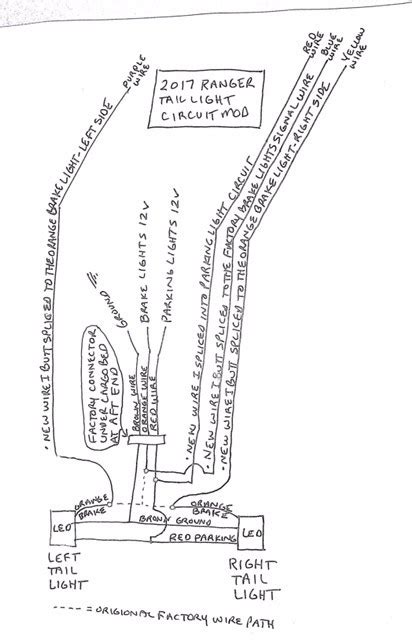 2017 RANGER
TAIL LIGHT
CIRCUIT MOD
PURPLE
WIRE
RED
WIRE
BLUE
WIRE
YELLOW
WIRE
• NEW WIRE I BUTT SPLICED TO THE ORANGE BRAKE LIGHT-LEFT SIDE
GROUND
BRAKE LIGHTS 12V
PARKING LIGHTS 12V
• NEW WIRE I SPLICED INTO PARKING LIGHT CIRCUIT
• NEW WIRE I BUTT SPLICED TO THE FACTORY BRAKE LIGHTS SIGNAL WIRE
• NEW WIRE I BUTT SPLICED TO THE ORANGE BRAKE LIGHT-RIGHT SIDE
FACTORY CONNECTOR
UNDER CARGO BED
AT AFT END
BROWN WIRE
ORANGE WIRE
RED WIRE
ORANGE
BRAKE
ORANGE
BRAKE
LED
BROWN GROUND
RED PARKING
LED
LEFT
TAIL
LIGHT
RIGHT
TAIL
LIGHT
---- = ORIGIONAL FACTORY WIRE PATH